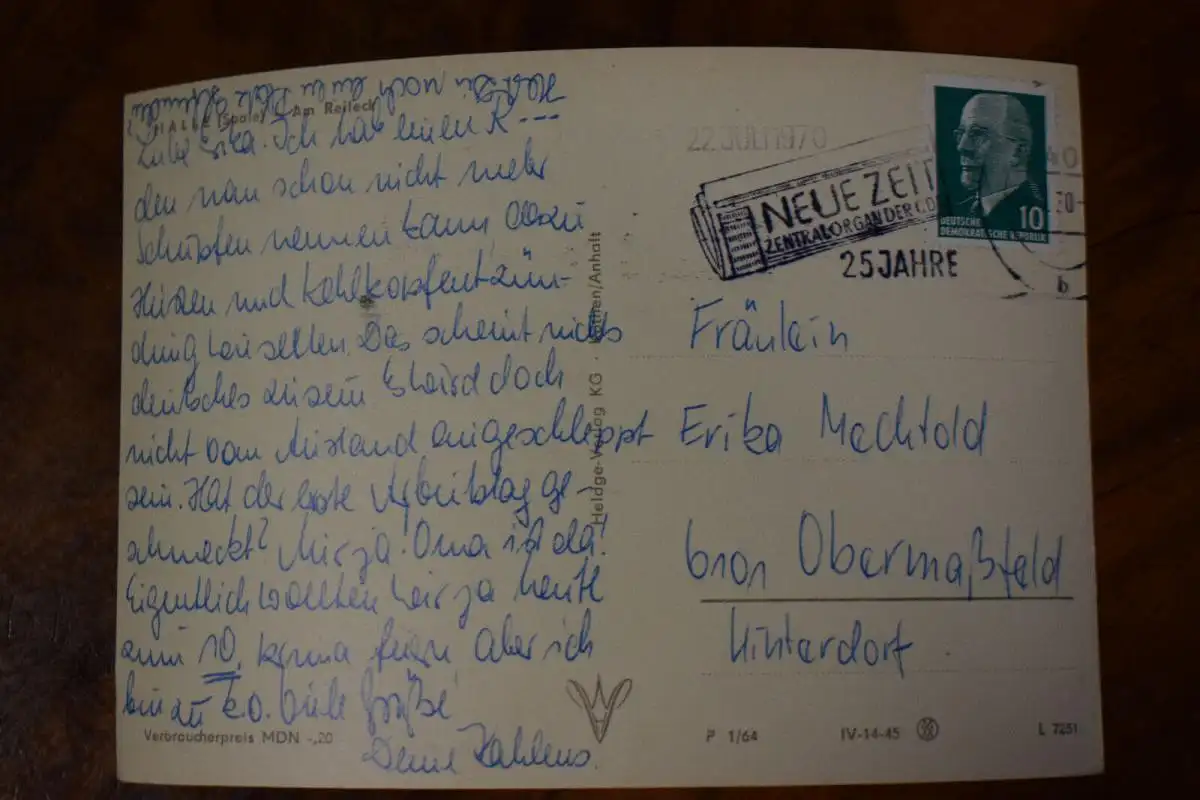 Hast Du noch
HALLE (Saale) Am Reileck
Liebe Erika. Ich hab einen K---
den man schon nicht mehr
Schnupfen nennen kann, dazu
Husten und Kehlkopfentzün-
dung Das scheint nichts
deutsches zu sein Es wird doch
nicht vom Ausland eingeschleppt
sein. Hat der erste Arbeitstag ge-
schmeckt? Mir ja! Oma ist da!
Eigentlich wollten wir ja heute
zum 10. feiern Aber ich
bin zu k.o. Viele Grüße
Deine
Verbraucherpreis MDN -,20
Heldge-Verlag KG · Köthen/Anhalt
22 JULI 1970
NEUE ZEIT
ZENTRALORGAN DER CD
25 JAHRE
10
DEUTSCHE
DEMOKRATISCHE REPUBLIK
b
Fräulein
Erika Mechtold
6101 Obermaßfeld
Hinterdorf
P 1/64 IV-14-45 L 7251